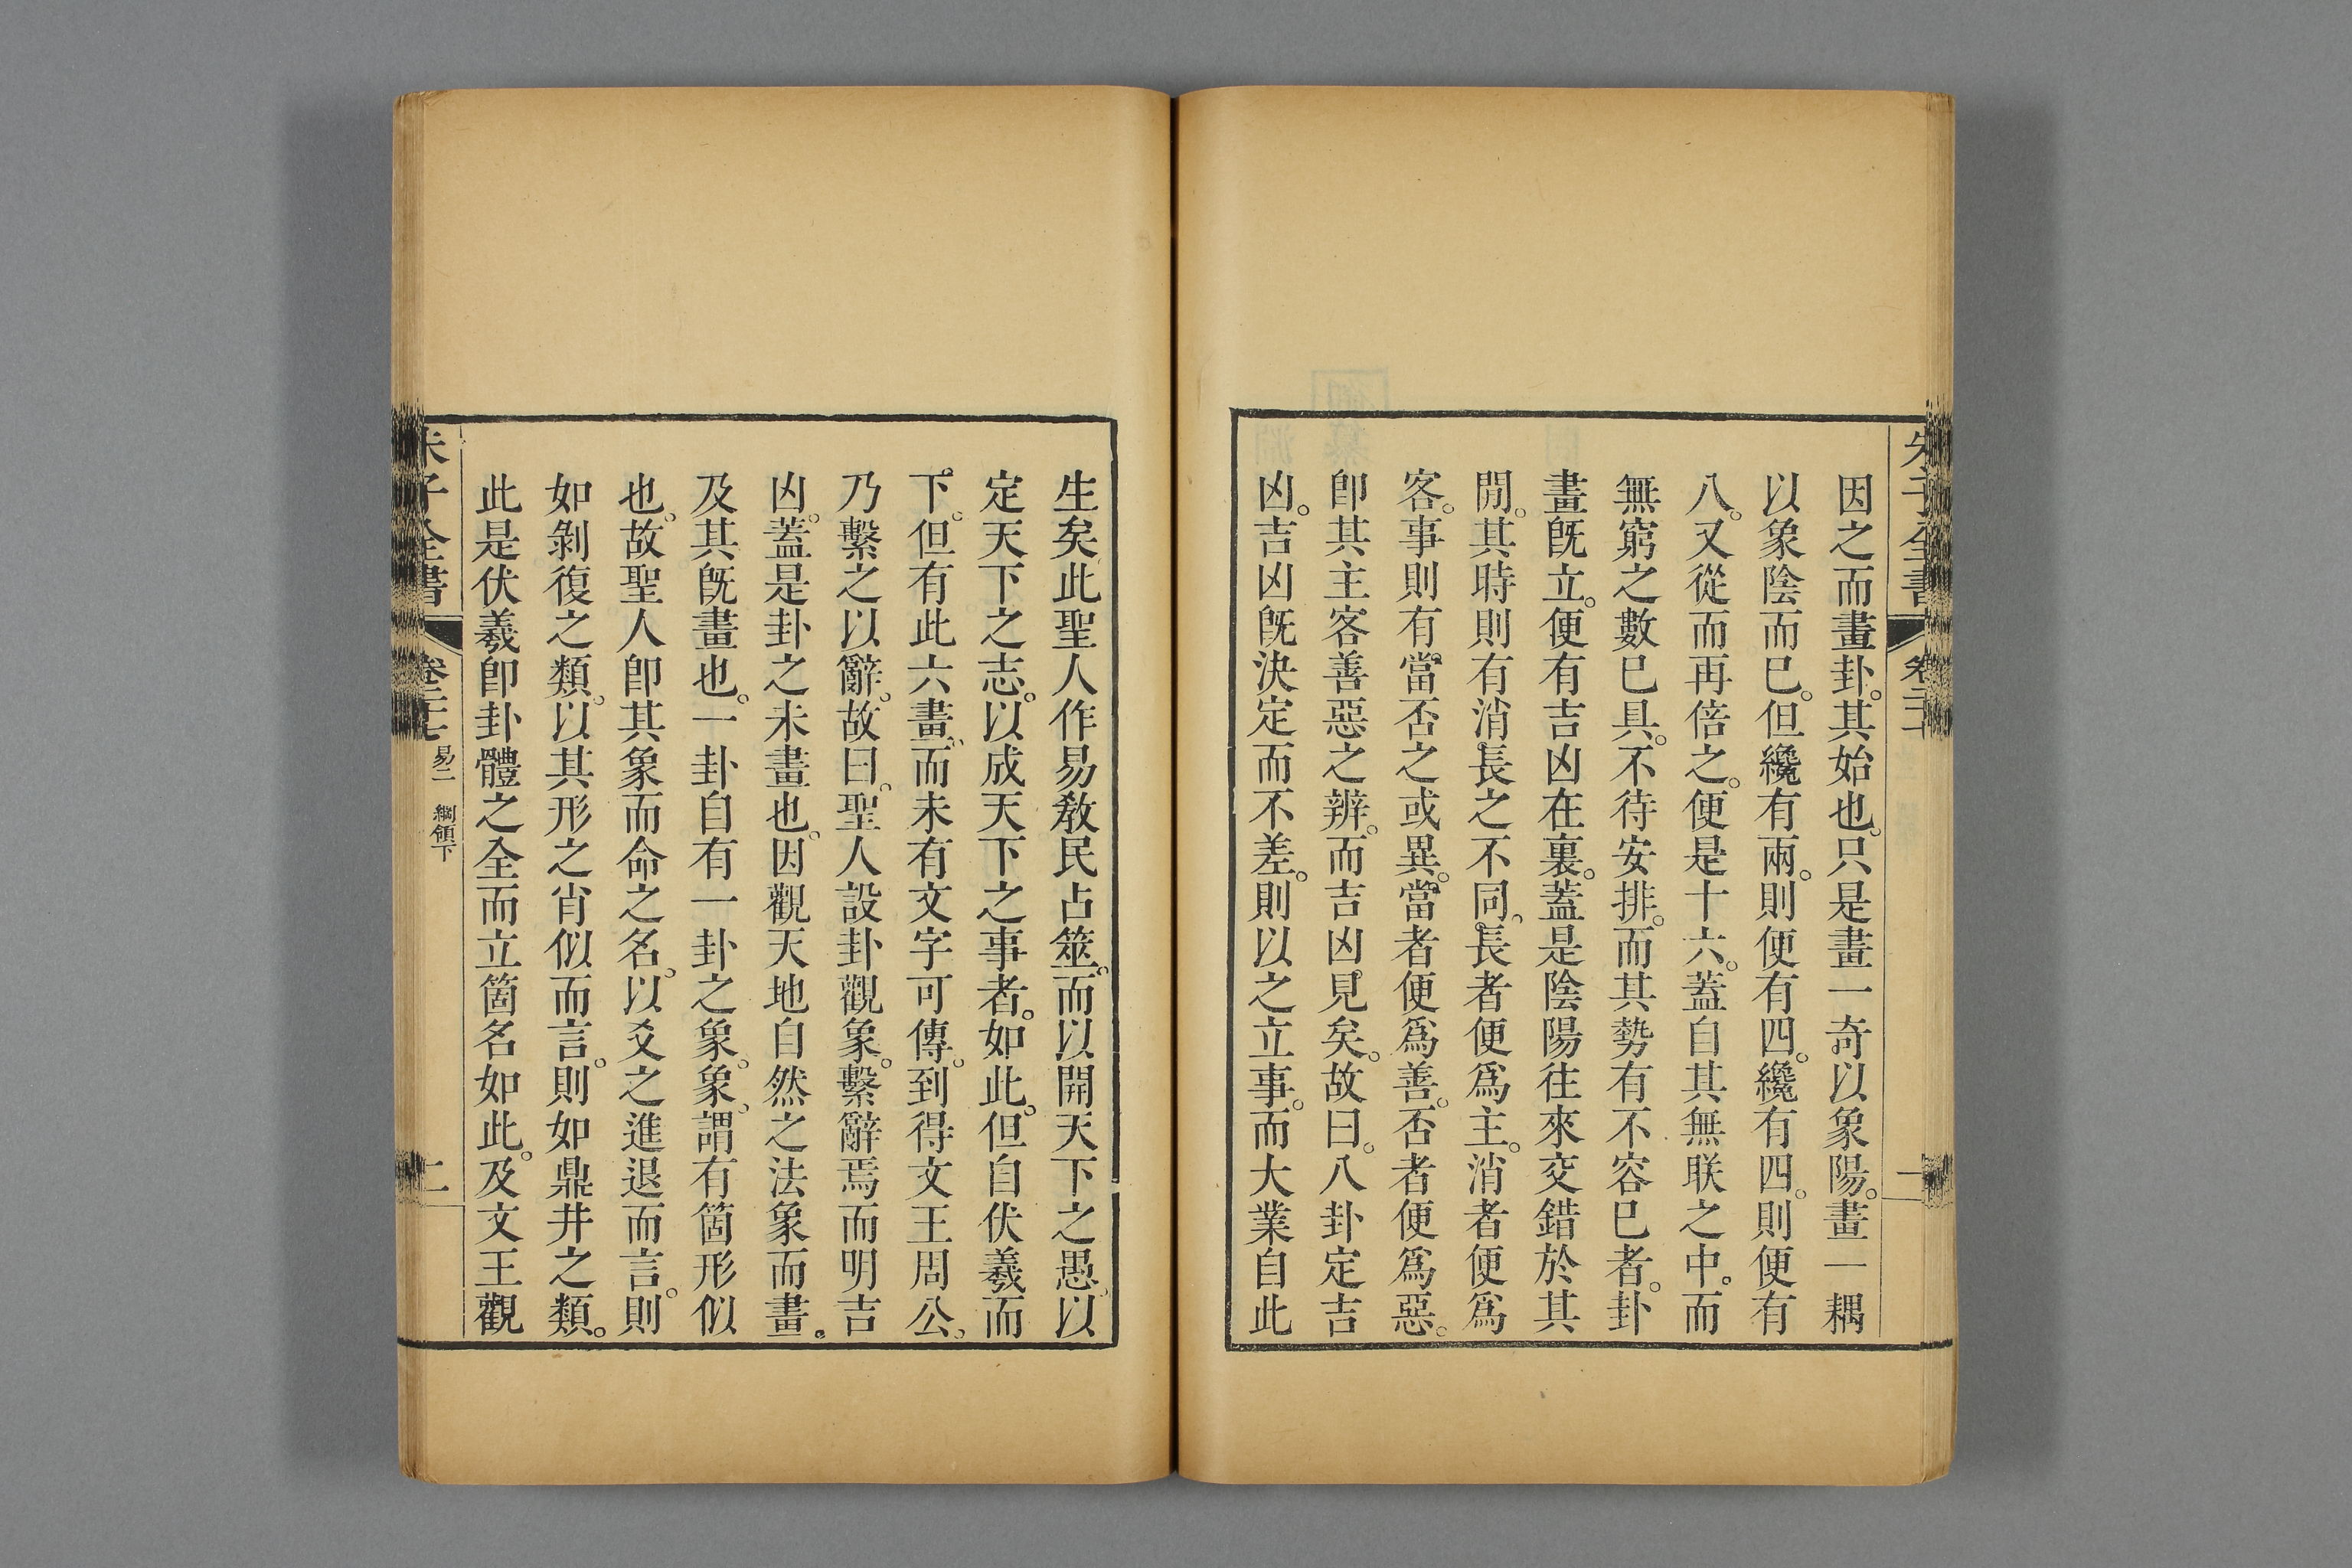 因之而畫卦。其始也。只是畫一奇以象陽。畫一耦
以象陰而已。但纔有兩。則便有四。纔有四。則便有
八。又從而再倍之。便是十六。蓋自其無朕之中。而
無窮之數已具。不待安排。而其勢有不容已者。卦
畫旣立。便有吉凶在裏。蓋是陰陽往來交錯於其
閒。其時則有消長之不同。長者便爲主。消者便爲
客。事則有當否之或異。當者便爲善。否者便爲惡。
卽其主客善惡之辨。而吉凶見矣。故曰。八卦定吉
凶。吉凶旣決定而不差。則以之立事。而大業自此
生矣此聖人作易敎民占筮。而以開天下之愚。以
定天下之志。以成天下之事者。如此。但自伏羲而
下。但有此六畫。而未有文字可傳。到得文王周公。
乃繫之以辭。故曰。聖人設卦觀象。繫辭焉而明吉
凶。蓋是卦之未畫也。因觀天地自然之法象而畫。
及其旣畫也。一卦自有一卦之象。象謂有箇形似
也。故聖人卽其象而命之名。以爻之進退而言。則
如剝復之類。以其形之肖似而言。則如鼎井之類。
此是伏羲卽卦體之全而立箇名如此。及文王觀
朱子全書 卷二十七 易二 綱領下 二